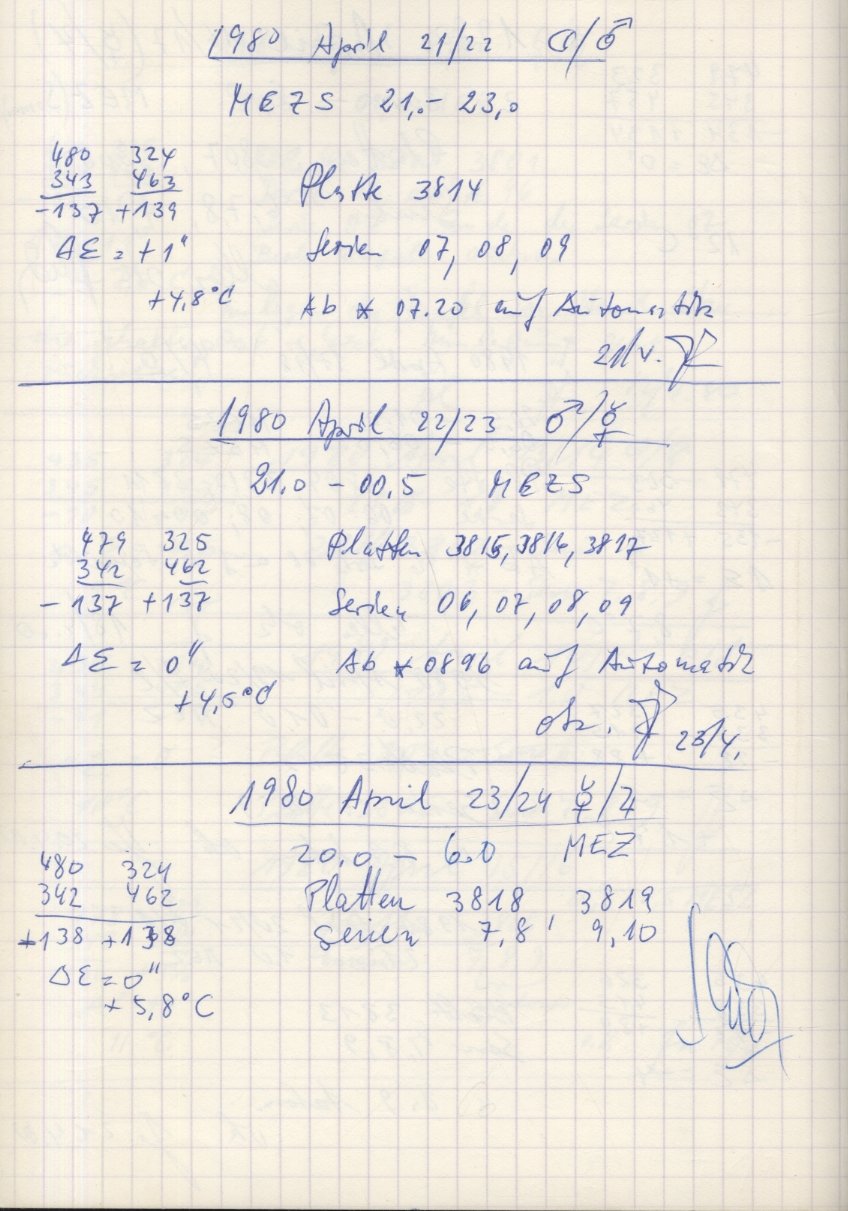 1980 April 21/22 ☾/♂
MEZS 21,- 23,0
480 324
343 463
-137 +139
Platte 3814
ΔΣ = +1"
Serien 07, 08, 09
+4,8°C
Ab * 07.20 auf Automatik
21/4.
1980 April 22/23 ♂/☿
21.0 - 00.5 MEZS
479 325
342 462
-137 +137
Platten 3815, 3816, 3817
Serien 06, 07, 08, 09
ΔΣ = 0"
Ab * 0896 auf Automatik
+4,6°C
23/4.
1980 April 23/24 ☿/♃
20.0 - 6.0 MEZ
480 324
342 462
+138 +138
Platten 3818, 3819
Serien 7,8 9,10
ΔΣ = 0"
+5,8°C